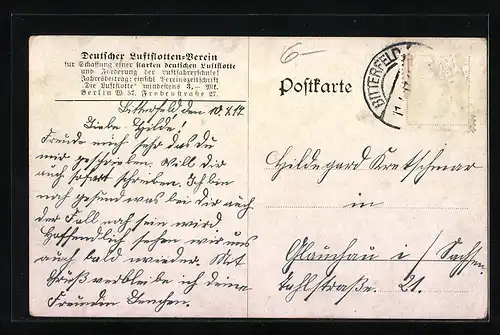 Deutscher Luftflotten-Verein
für Schaffung einer starken deutschen Luftflotte
und Förderung der Luftfahrerschule!
Jahresbeitrag: einschl. Vereinszeitschrift
"Die Luftflotte" mindestens 3,— Mk.
Berlin W 57. Frobenstraße 27.
6—
Postkarte
BITTERFELD
Bitterfeld den 10.7.14.
Liebe Hilde!
Freude mich sehr das du
mir geschrieben. Will dir
auch sofort schreiben. Ich bin
noch gesund was bei dir auch
der Fall noch sein wird.
Hoffendlich sehen wir uns
auch bald wieder. Mit
Gruß verbleibe ich deine
Freundin Lenchen.
Hildegard Kretschmar
in
Glauchau i/ Sachsen.
Talstraße 21.